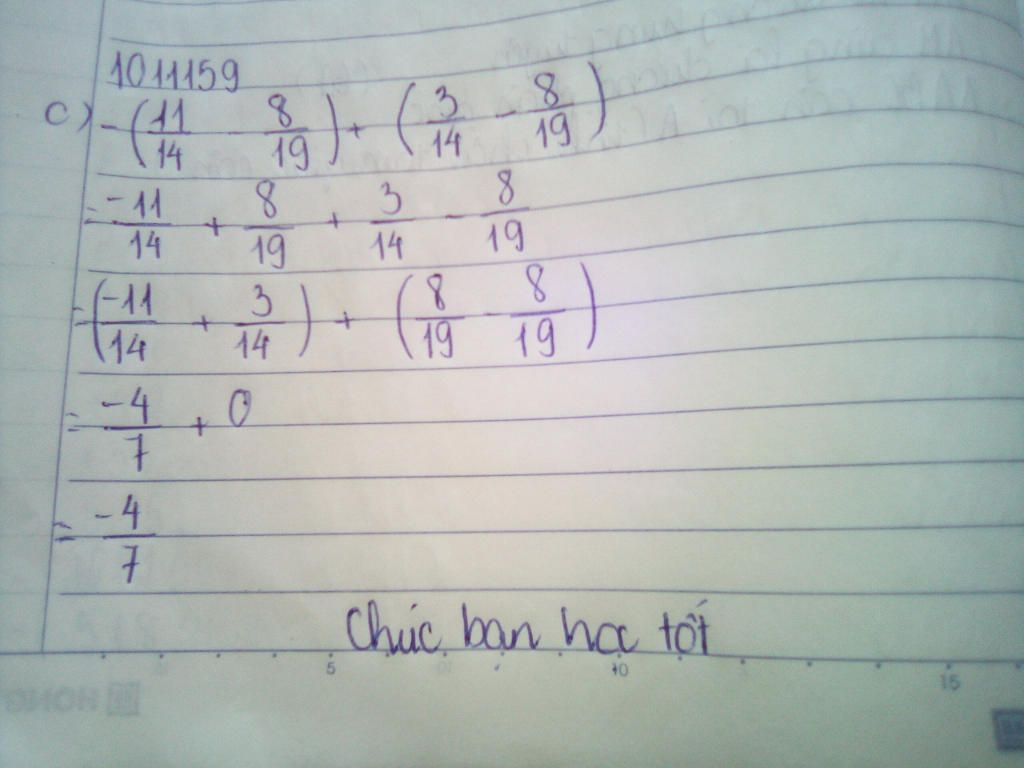 1011159
c) -(11/14 - 8/19) + (3/14 - 8/19)
= -11/14 + 8/19 + 3/14 - 8/19
= (-11/14 + 3/14) + (8/19 - 8/19)
= -4/7 + 0
= -4/7
Chúc bạn học tốt
5 10 15